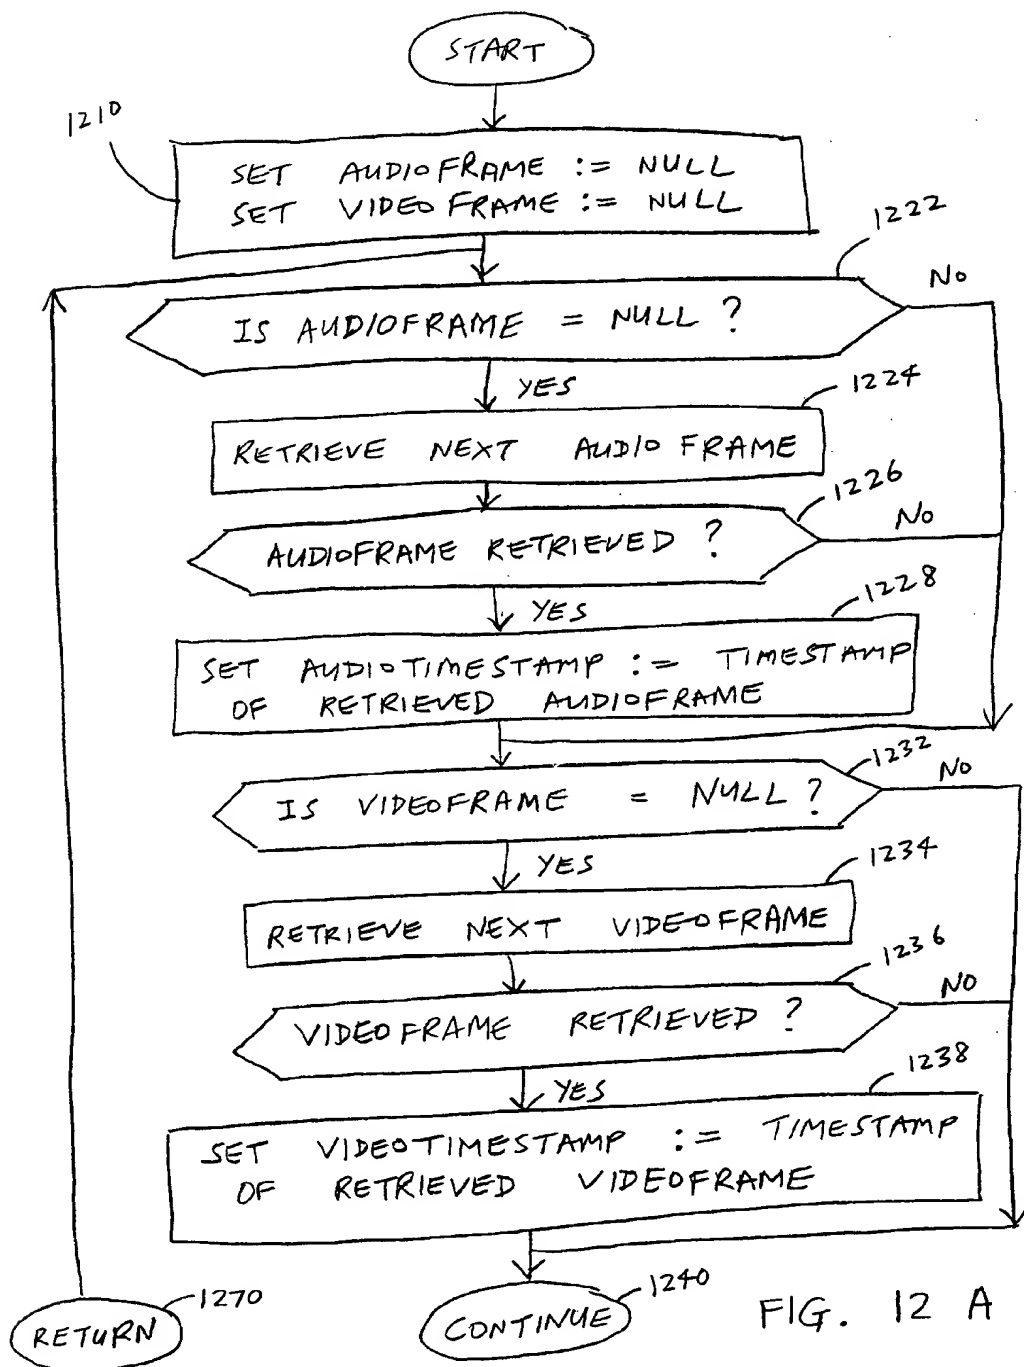 START
1210
SET AUDIOFRAME := NULL
SET VIDEOFRAME := NULL
1222
IS AUDIOFRAME = NULL ?
NO
YES
1224
RETRIEVE NEXT AUDIOFRAME
1226
AUDIOFRAME RETRIEVED ?
NO
YES
1228
SET AUDIOTIMESTAMP := TIMESTAMP
OF RETRIEVED AUDIOFRAME
1232
IS VIDEOFRAME = NULL ?
NO
YES
1234
RETRIEVE NEXT VIDEOFRAME
1236
VIDEOFRAME RETRIEVED ?
NO
YES
1238
SET VIDEOTIMESTAMP := TIMESTAMP
OF RETRIEVED VIDEOFRAME
1270
RETURN
1240
CONTINUE
FIG. 12 A